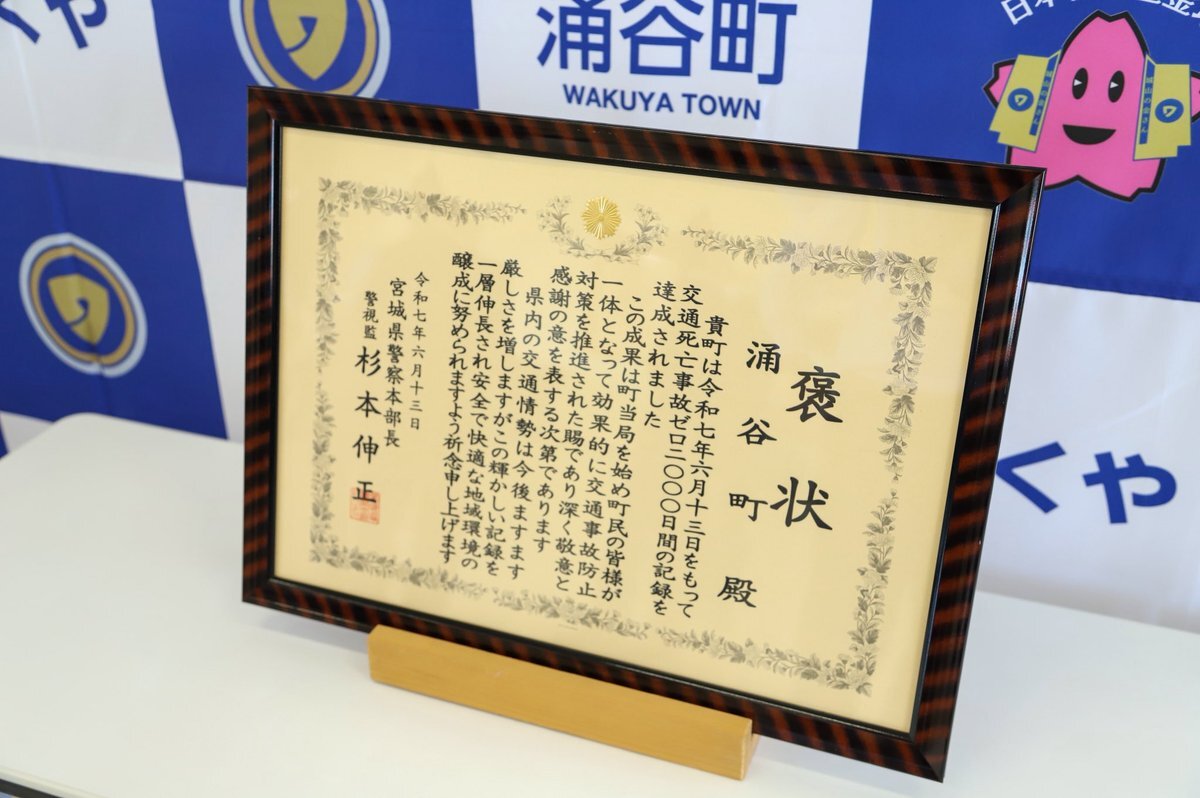 涌谷町
WAKUYA TOWN
褒状
涌谷町殿
貴町は令和七年六月十三日をもって
交通死亡事故ゼロ二〇〇〇日間の記録を
達成されました
この成果は町当局を始め町民の皆様が
一体となって効果的に交通事故防止
対策を推進された賜であり深く敬意と
感謝の意を表する次第であります
県内の交通情勢は今後ますます
厳しさを増しますがこの輝かしい記録を
一層伸長され安全で快適な地域環境の
醸成に努められますよう祈念申し上げます
令和七年六月十三日
宮城県警察本部長
警視監 杉本伸正
くや
くや
日本
城山の金さん